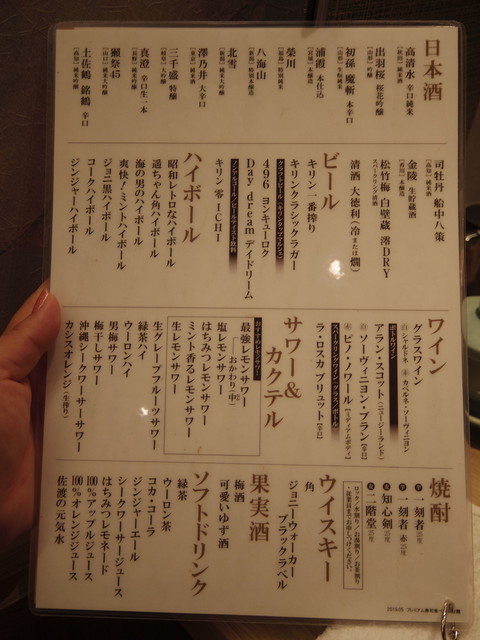 日本酒
高清水 辛口純米
出羽桜 桜花吟醸
初孫 魔斬 本辛口
浦霞 本仕込
榮川
八海山
北雪
澤乃井 大辛口
三千盛 特醸
真澄 辛口生一本
獺祭45
土佐鶴 銘鶴 辛口
司牡丹 船中八策
金陵 生貯蔵酒
松竹梅 白壁蔵 澪DRY
スパークリング清酒
清酒 大徳利(冷または燗)
ビール
キリン一番搾り
キリンクラシックラガー
クラフトビール
496 ヨンキューロク
Day dream デイドリーム
ノンアルコール・ビールテイスト飲料
キリン 零ICHI
ハイボール
昭和レトロなハイボール
遥ちゃん角ハイボール
海の男のハイボール
爽快!ミントハイボール
ジョニ黒ハイボール
コークハイボール
ジンジャーハイボール
ワイン
グラスワイン
シャルドネ カベルネ・ソーヴィニヨン
ボトルワイン
アラン・スコット(ニュージーランド)
ソーヴィニヨン・ブラン【辛口】
ピノ・ノワール【ミディアムボディ】
スパークリングワイン(グラス/ボトル)
ラ・ロスカ ブリュット【辛口】
サワー&
カクテル
最強レモンサワー
おかわり(中)
塩レモンサワー
はちみつレモンサワー
ミント香るレモンサワー
生レモンサワー
生グレープフルーツサワー
緑茶ハイ
ウーロンハイ
男梅サワー
梅干しサワー
沖縄シークワーサーサワー
カシスオレンジ(生搾り)
焼酎
一刻者
一刻者 赤
知心剣
二階堂
ロック/水割り/お湯割り/お茶割り
ウイスキー
角
ジョニーウォーカー
ブラックラベル
果実酒
梅酒
可愛いゆず酒
ソフトドリンク
緑茶
ウーロン茶
コカ・コーラ
ジンジャーエール
シークワーサージュース
はちみつレモネード
100%アップルジュース
100%オレンジジュース
佐渡の元気水